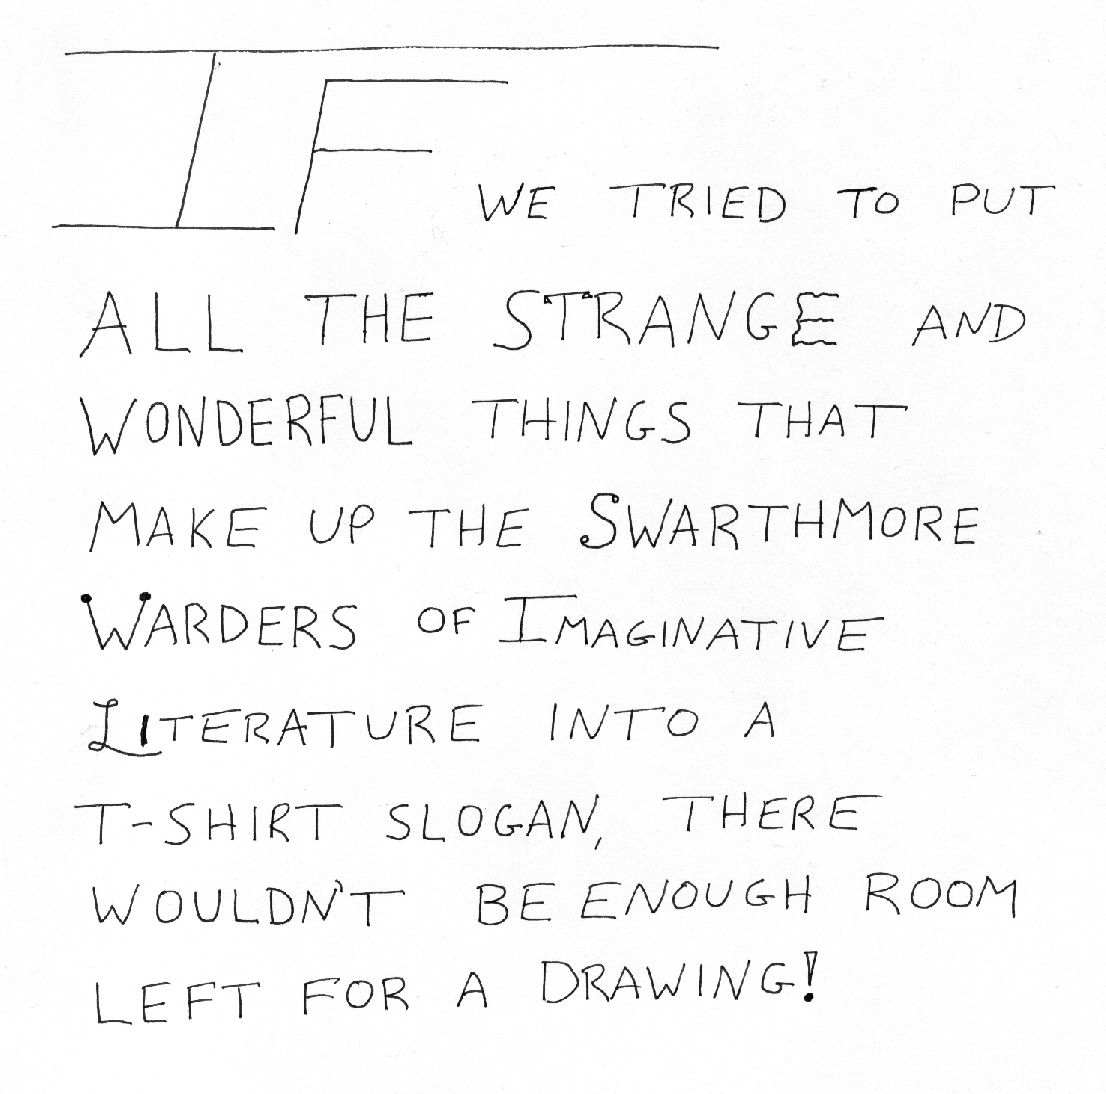 IF WE TRIED TO PUT
ALL THE STRANGE AND
WONDERFUL THINGS THAT
MAKE UP THE SWARTHMORE
WARDERS OF IMAGINATIVE
LITERATURE INTO A
T-SHIRT SLOGAN, THERE
WOULDN'T BE ENOUGH ROOM
LEFT FOR A DRAWING!